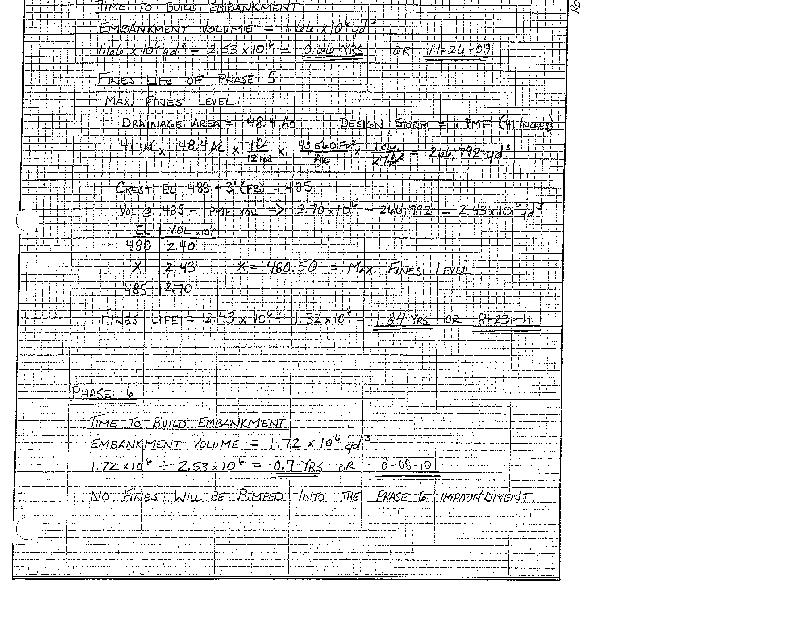 TIME TO BUILD EMBANKMENT
EMBANKMENT VOLUME = 1.66 x 10⁶ yd³
1.66 x 10⁶ yd³ ÷ 2.53 x 10⁶ = 0.66 YRS OR 11-26-09
FINES LIFE OF PHASE 5
MAX. FINES LEVEL
DRAINAGE AREA = 48.4 AC DESIGN STORM = PMF (41 INCHES)
41 IN x 48.4 AC x 1 FT / 12 IN x 43560 FT² / AC x = 266,792 yd³
CREST EL 488 - 3' (FB) = 485
VOL @ 485 - PMF VOL => 2.70 x 10⁶ - 266,792 = 2.43 x 10⁶ yd³
EL VOL x10⁶
480 2.40
X 2.43 X = 480.50 = MAX FINES LEVEL
485 2.70
FINES LIFE = 2.43 x 10⁶ ÷ 1.32 x 10⁶ = 1.84 YRS OR
PHASE 6
TIME TO BUILD EMBANKMENT
EMBANKMENT VOLUME = 1.72 x 10⁶ yd³
1.72 x 10⁶ ÷ 2.53 x 10⁶ = 0.7 YRS OR
NO FINES WILL BE PUMPED INTO THE PHASE 6 IMPOUNDMENT.